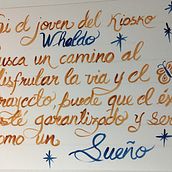 ni el joven del Kiosko
Waldo
usca un camino al
disfrutar la via y el
trayecto, puede que el éx
esté garantizado y ser
como un Sueño